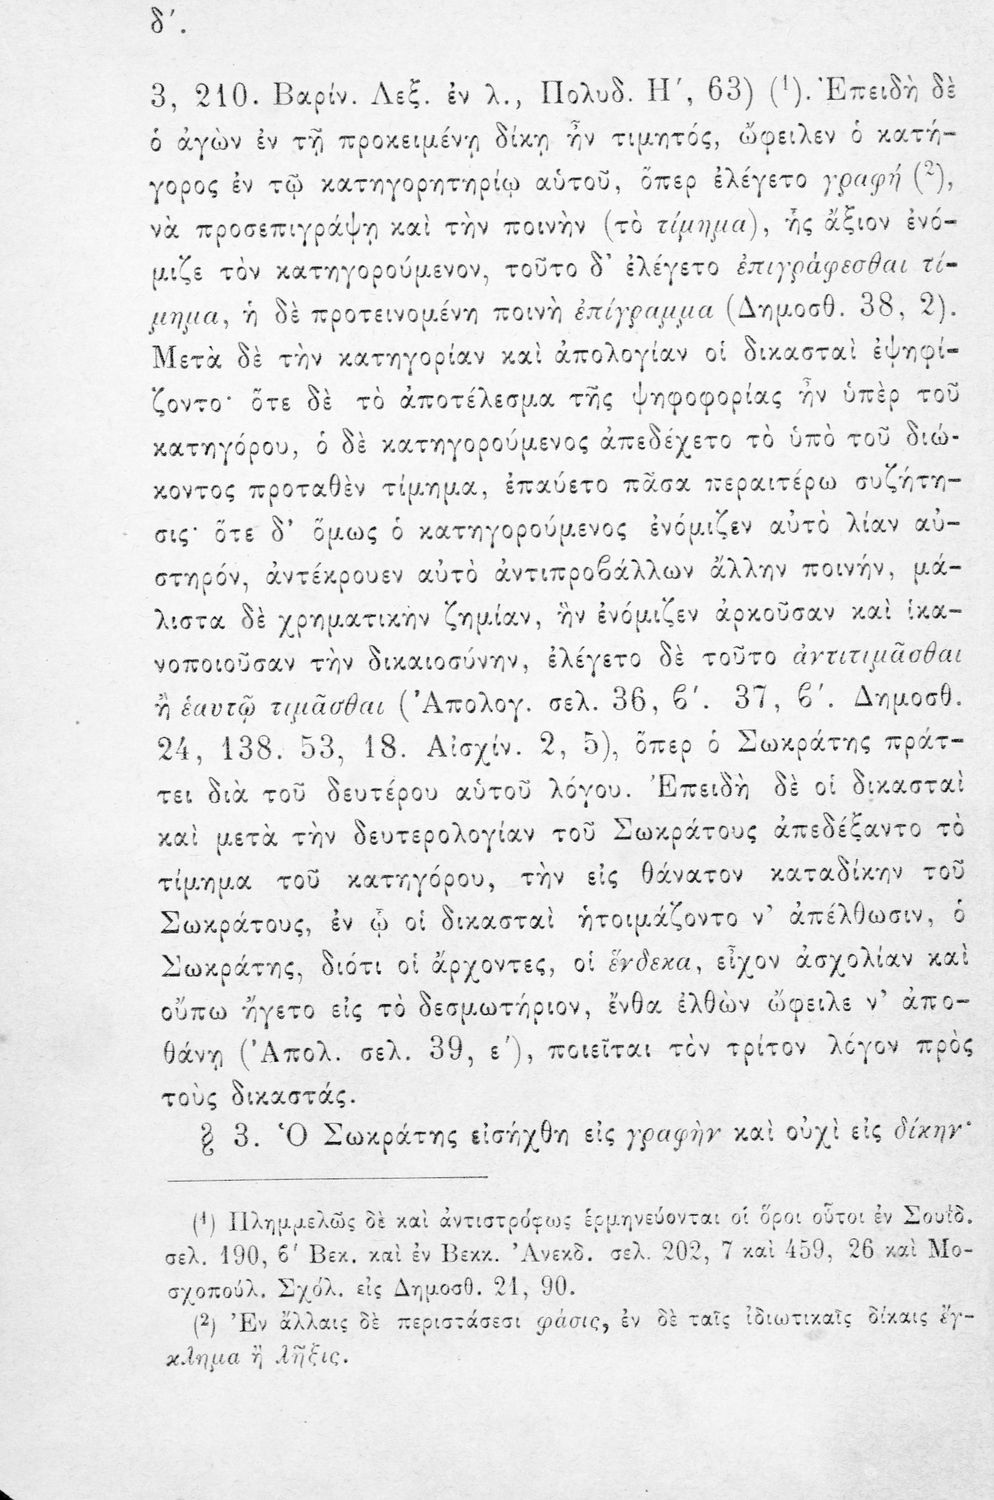 δ′.
3, 210. Βαρίν. Λεξ. ἐν λ., Πολυδ. Η′, 63) (¹). Ἐπειδὴ δὲ
ὁ ἀγὼν ἐν τῇ προκειμένῃ δίκῃ ἦν τιμητός, ὤφειλεν ὁ κατή-
γορος ἐν τῷ κατηγορητηρίῳ αὑτοῦ, ὅπερ ἐλέγετο γραφή (²),
νὰ προσεπιγράψῃ καὶ τὴν ποινὴν (τὸ τίμημα), ἧς ἄξιον ἐνό-
μιζε τὸν κατηγορούμενον, τοῦτο δ' ἐλέγετο ἐπιγράφεσθαι τί-
μημα, ἡ δὲ προτεινομένη ποινὴ ἐπίγραμμα (Δημοσθ. 38, 2).
Μετὰ δὲ τὴν κατηγορίαν καὶ ἀπολογίαν οἱ δικασταὶ ἐψηφί-
ζοντο· ὅτε δὲ τὸ ἀποτέλεσμα τῆς ψηφοφορίας ἦν ὑπὲρ τοῦ
κατηγόρου, ὁ δὲ κατηγορούμενος ἀπεδέχετο τὸ ὑπὸ τοῦ διώ-
κοντος προταθὲν τίμημα, ἐπαύετο πᾶσα περαιτέρω συζήτη-
σις· ὅτε δ' ὅμως ὁ κατηγορούμενος ἐνόμιζεν αὐτὸ λίαν αὐ-
στηρόν, ἀντέκρουεν αὐτὸ ἀντιπροβάλλων ἄλλην ποινήν, μά-
λιστα δὲ χρηματικὴν ζημίαν, ἣν ἐνόμιζεν ἀρκοῦσαν καὶ ἱκα-
νοποιοῦσαν τὴν δικαιοσύνην, ἐλέγετο δὲ τοῦτο ἀντιτιμᾶσθαι
ἢ ἑαυτῷ τιμᾶσθαι (Ἀπολογ. σελ. 36, β′. 37, β′. Δημοσθ.
24, 138. 53, 18. Αἰσχίν. 2, 5), ὅπερ ὁ Σωκράτης πράτ-
τει διὰ τοῦ δευτέρου αὑτοῦ λόγου. Ἐπειδὴ δὲ οἱ δικασταὶ
καὶ μετὰ τὴν δευτερολογίαν τοῦ Σωκράτους ἀπεδέξαντο τὸ
τίμημα τοῦ κατηγόρου, τὴν εἰς θάνατον καταδίκην τοῦ
Σωκράτους, ἐν ᾧ οἱ δικασταὶ ἡτοιμάζοντο ν' ἀπέλθωσιν, ὁ
Σωκράτης, διότι οἱ ἄρχοντες, οἱ ἕνδεκα, εἶχον ἀσχολίαν καὶ
οὔπω ἤγετο εἰς τὸ δεσμωτήριον, ἔνθα ἐλθὼν ὤφειλε ν' ἀπο-
θάνῃ (Ἀπολ. σελ. 39, ε′), ποιεῖται τὸν τρίτον λόγον πρὸς
τοὺς δικαστάς.
§ 3. Ὁ Σωκράτης εἰσήχθη εἰς γραφὴν καὶ οὐχὶ εἰς δίκην·
(¹) Πλημμελῶς δὲ καὶ ἀντιστρόφως ἑρμηνεύονται οἱ ὅροι οὗτοι ἐν Σουΐδ.
σελ. 190, β′ Βεκ. καὶ ἐν Βεκκ. Ἀνεκδ. σελ. 202, 7 καὶ 459, 26 καὶ Μο-
σχοπούλ. Σχόλ. εἰς Δημοσθ. 21, 90.
(²) Ἐν ἄλλαις δὲ περιστάσεσι φάσις, ἐν δὲ ταῖς ἰδιωτικαῖς δίκαις ἔγ-
κλημα ἢ λῆξις.